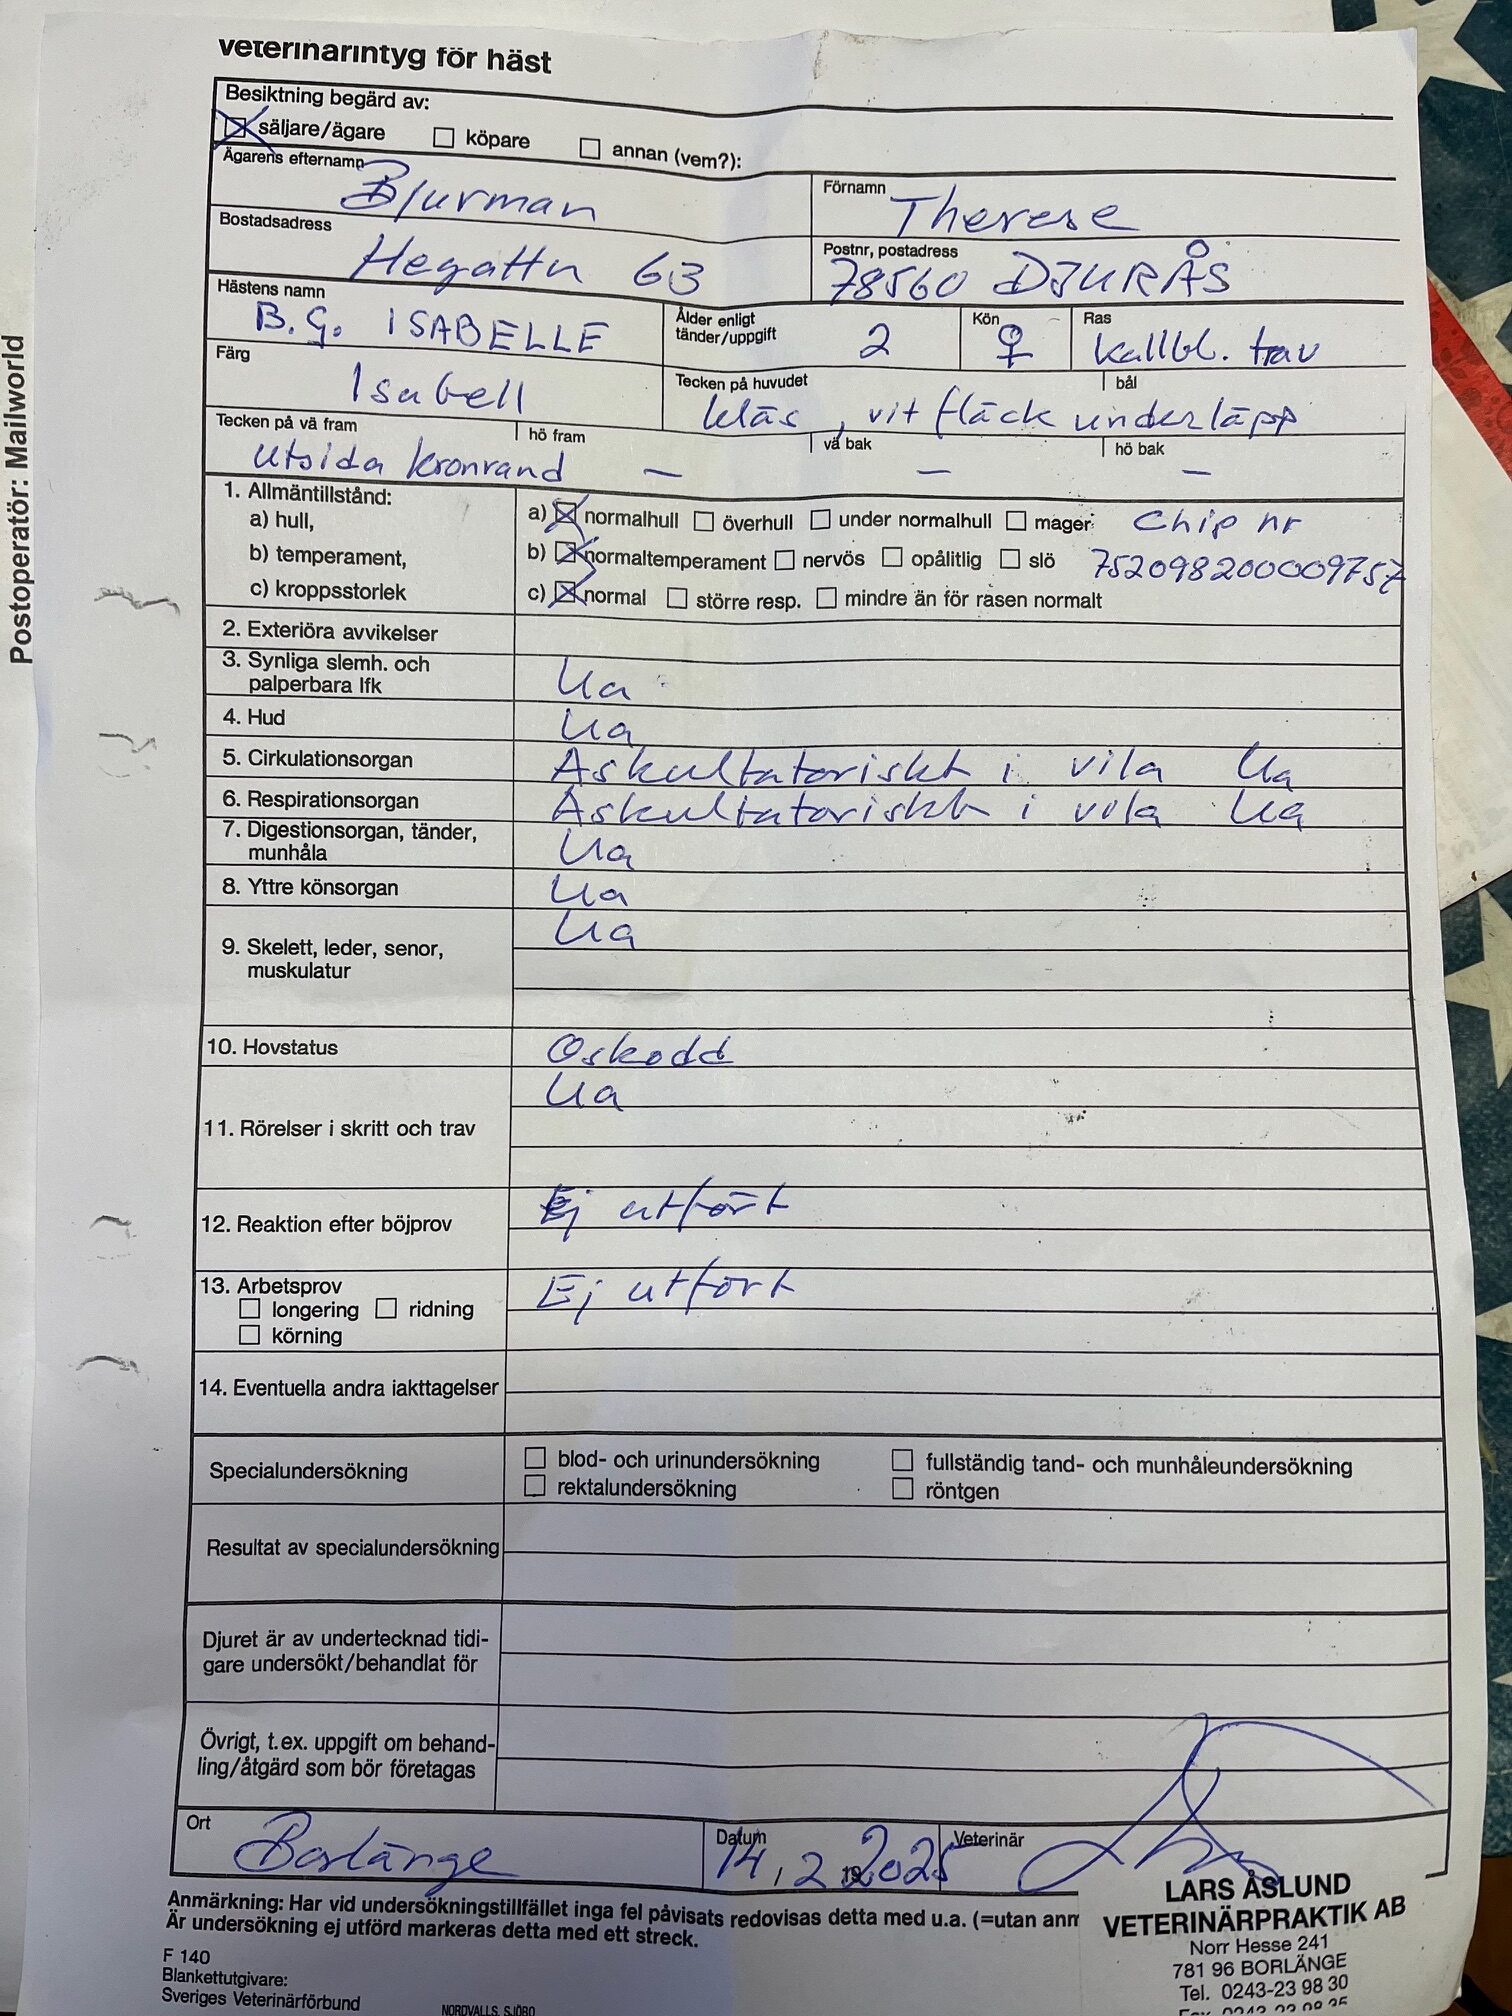 veterinärintyg för häst
Besiktning begärd av:
säljare/ägare köpare annan (vem?):
Ägarens efternamn Förnamn
Bjurman Therese
Bostadsadress Postnr, postadress
Hegattu 63 78560 DJURÅS
Hästens namn Ålder enligt tänder/uppgift Kön Ras
B.G. ISABELLE 2 ♀ kallbl. trav
Färg Tecken på huvudet bål
Isabell bläs, vit fläck underläpp
Tecken på vä fram hö fram vä bak hö bak
utsida kronrand — — —
1. Allmäntillstånd:
a) hull, a) normalhull överhull under normalhull mager Chip nr
b) temperament, b) normaltemperament nervös opålitlig slö 752098200009757
c) kroppsstorlek c) normal större resp. mindre än för rasen normalt
2. Exteriöra avvikelser
3. Synliga slemh. och
palperbara lfk Ua
4. Hud Ua
5. Cirkulationsorgan Askultatoriskt i vila Ua
6. Respirationsorgan Askultatoriskt i vila Ua
7. Digestionsorgan, tänder,
munhåla Ua
8. Yttre könsorgan Ua
9. Skelett, leder, senor, Ua
muskulatur
10. Hovstatus Oskodd
11. Rörelser i skritt och trav Ua
12. Reaktion efter böjprov Ej utfört
13. Arbetsprov Ej utfört
longering ridning
körning
14. Eventuella andra iakttagelser
Specialundersökning blod- och urinundersökning fullständig tand- och munhåleundersökning
rektalundersökning röntgen
Resultat av specialundersökning
Djuret är av undertecknad tidi-
gare undersökt/behandlat för
Övrigt, t.ex. uppgift om behand-
ling/åtgärd som bör företagas
Ort Datum Veterinär
Borlänge 14, 2 19 2025
Anmärkning: Har vid undersökningstillfället inga fel påvisats redovisas detta med u.a. (=utan anm
Är undersökning ej utförd markeras detta med ett streck.
F 140
Blankettutgivare:
Sveriges Veterinärförbund
NORDVALLS, SJÖBO
LARS ÅSLUND
VETERINÄRPRAKTIK AB
Norr Hesse 241
781 96 BORLÄNGE
Tel. 0243-23 98 30
Fax 0243-23 98 35
Postoperatör: Mailworld